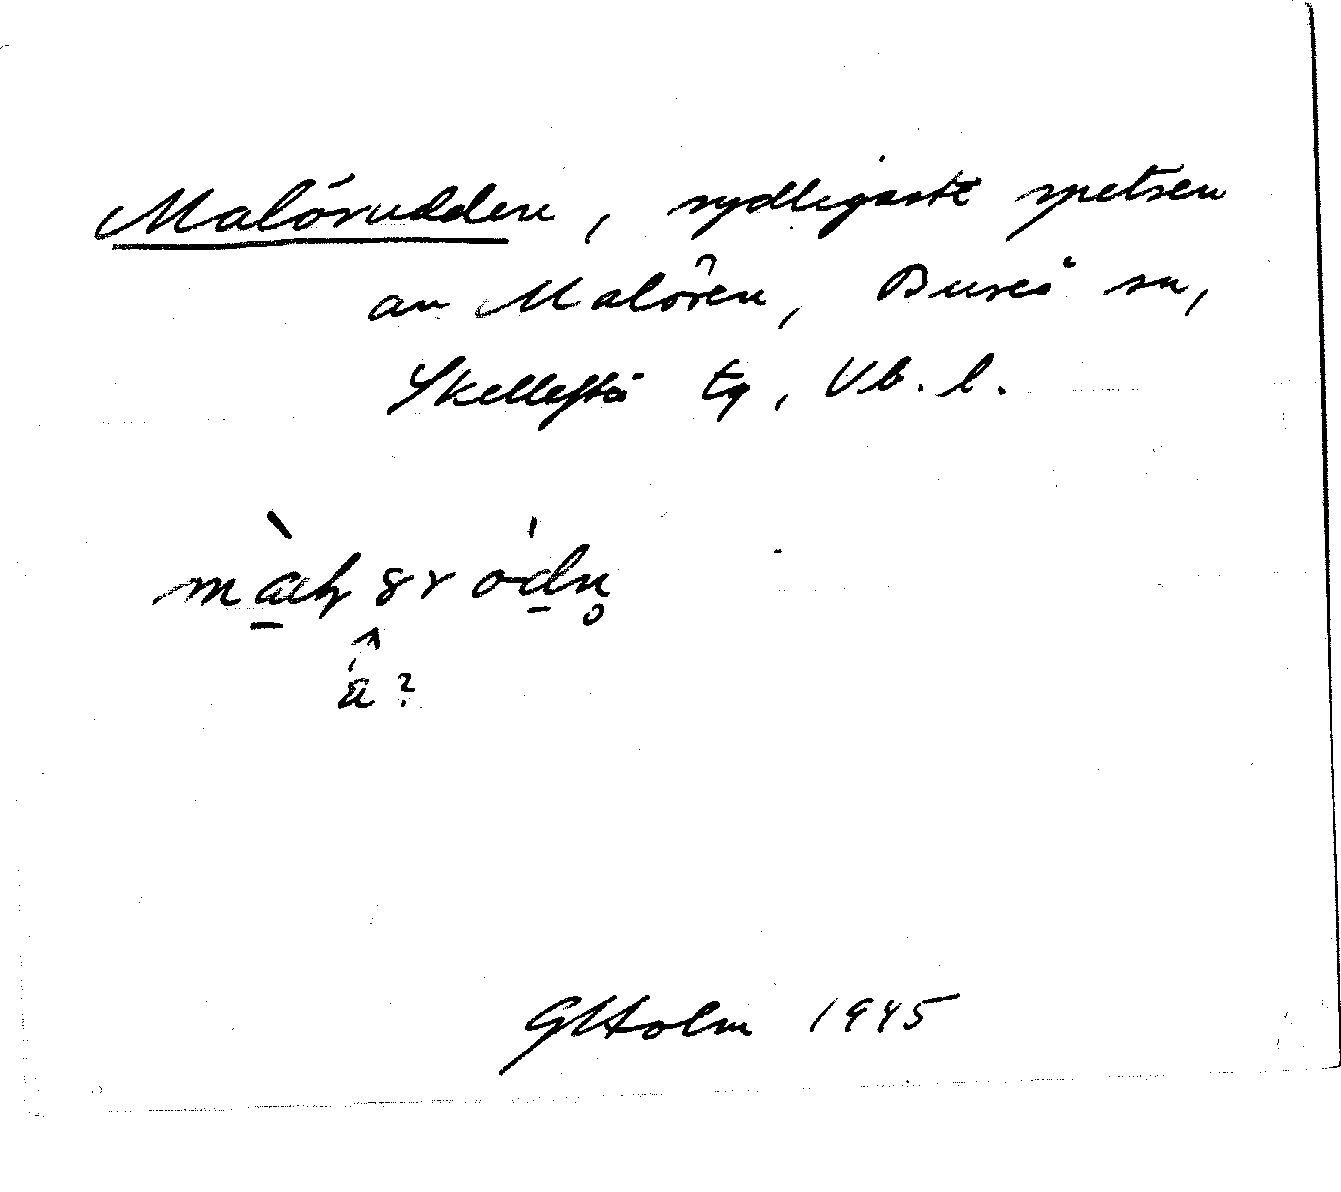 Malörudden, sydligaste spetsen
av Malören, Bureå sn,
Skellefteå tg, Vb. l.
GHolm 1945